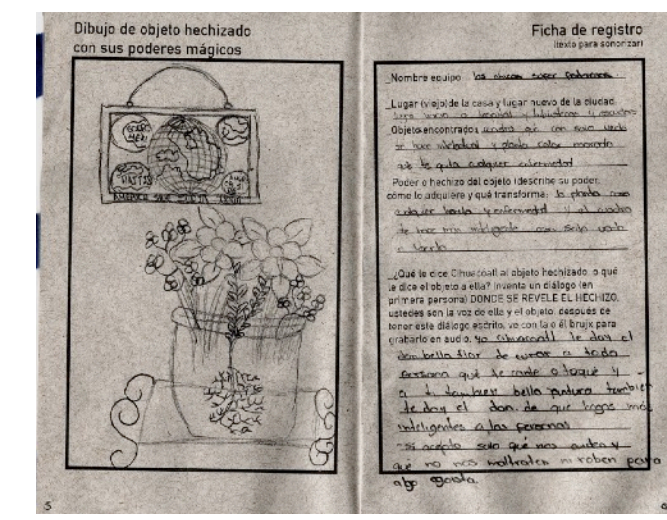 Dibujo de objeto hechizado
con sus poderes mágicos
Ficha de registro
(texto para sonorizar)
Nombre equipo los chicos super poderosos.
Lugar (viejo) de la casa y lugar nuevo de la ciudad
Objeto encontrado cuadro que con solo verlo
se hace y planta color morado
que te quita cualquier enfermedad
Poder o hechizo del objeto (describe su poder,
cómo lo adquiere y qué transforma: la planta
cualquier y enfermedad y el cuadro
te hace mas inteligente con solo verlo
o
¿Qué le dice Cihuacóatl al objeto hechizado o qué
le dice el objeto a ella? Inventa un diálogo (en
primera persona) DONDE SE REVELE EL HECHIZO,
ustedes son la voz de ella y el objeto, después de
tener este diálogo escrito, ve con la o él brujx para
grabarlo en audio. Yo Cihuacoatl le doy el
don bella flor de curar a toda
persona qué te cante o toqué y
a ti tambien bella pintura tambien
te doy el don de que hagas más
inteligentes a las personas
-Si acepto solo qué nos cuiden y
qué no nos maltraten ni roben para
algo egoista.
5